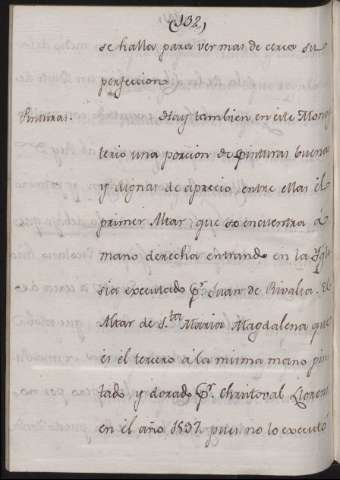 (132)
se halla para ver mas de cerca su
perfeccion
Pinturas. Hay tambien en este Monas
terio una porcion de pinturas buenas
y dignas de aprecio, entre ellas el
primer Altar que se encuentra a
mano derecha entrando en la Ygle
sia executado Pr. Juan de Rivalta. El
Altar de S.ta Maria Magdalena que
es el tercero a la misma mano pin
tado y dorado Pr. Christoval Llorens
en el año 1597 pues no lo executó